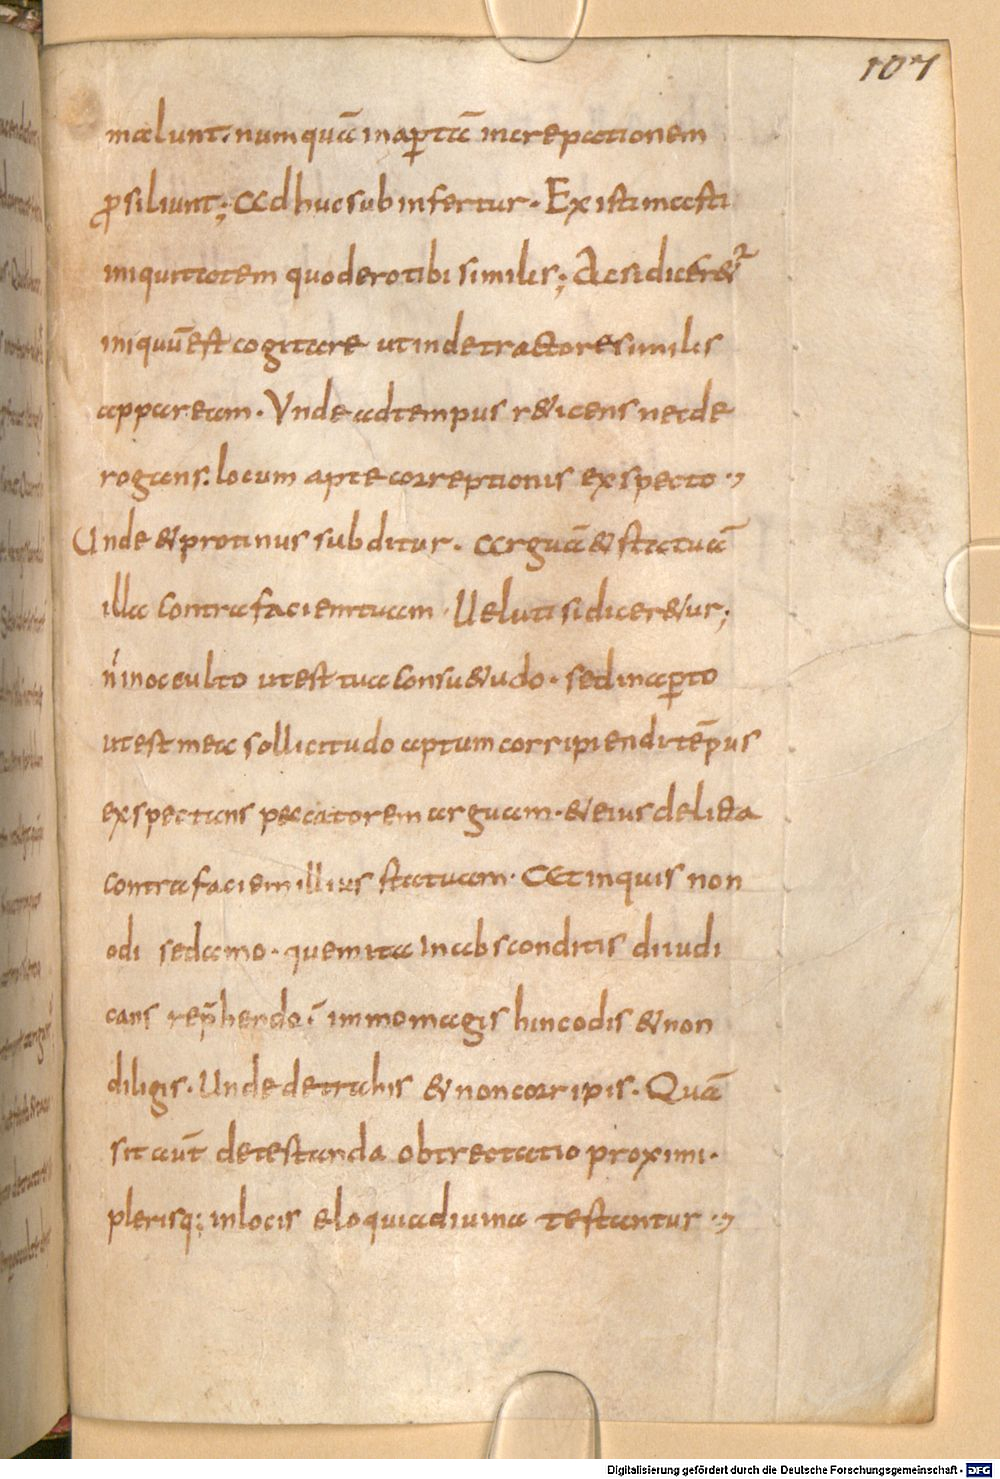 107
malunt. numquā inaptā increpationem
ꝓsiliunt; adhuc subinfertur. Existimasti
iniquitatem quod ero tibi similis; Ac si dicer&ur
iniquū est cogitare ut in detractore similis
appaream. Unde ad tempus r&icens nec de
rogans. locum apte correptionis exspecto.,
Unde & protinus subditur. arguā & statuā
illa contra faciem tuam. Veluti si dicer&ur;
n̄ in occulto ut est tua consu&udo. sed in aꝑto
ut est mea sollicitudo aptum corripiendi tēpus
exspectans peccatorem arguam. & eius delicta
contra faciem illius statuam. at inquis non
odi sed amo. quem ita in absconditis diiudi
cans rep̄hendo; immo magis hinc odis & non
diligis. Unde detrahis & non corripis. Quā
sit aūt detestanda obtrectatio proximi.
plerisq; in locis eloquia diuina testantur.,
Digitalisierung gefördert durch die Deutsche Forschungsgemeinschaft - DFG